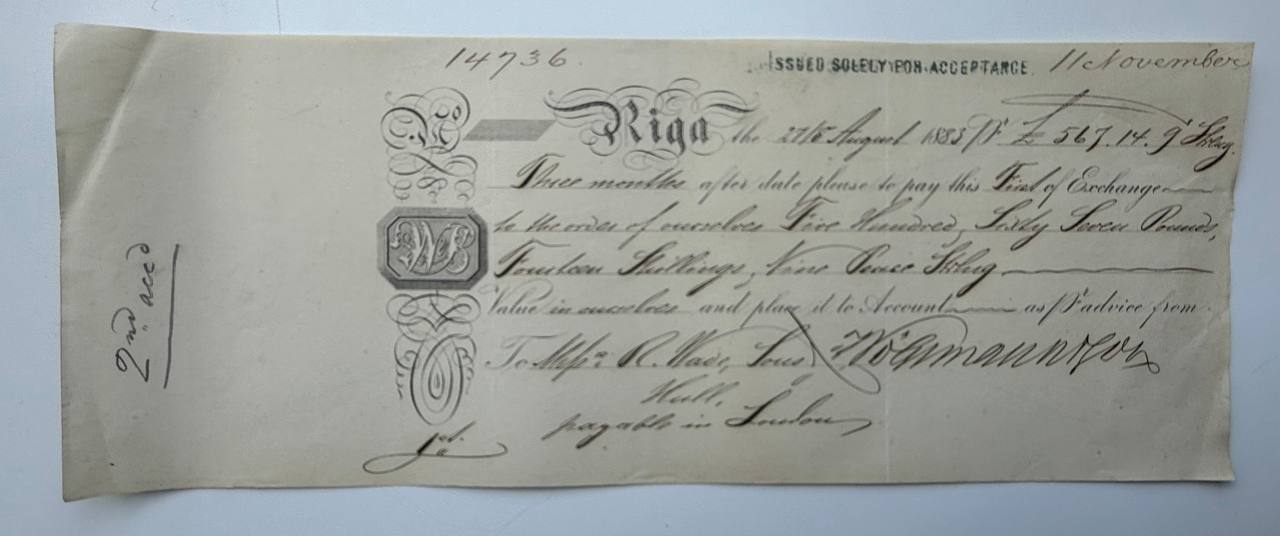 14736
ISSUED SOLELY FOR ACCEPTANCE 11 November
No Riga the August 1883 pr £ 567.14.9 Strlng.
Three months after date please to pay this First of Exchange
to the order of ourselves Five Hundred, Sixty Seven Pounds,
Fourteen Shillings, Nine Pence Strlng
Value in ourselves and place it to Account as pr advice from
To Messrs. R. Wade, Sons
Hull,
payable in London
2nd acc d